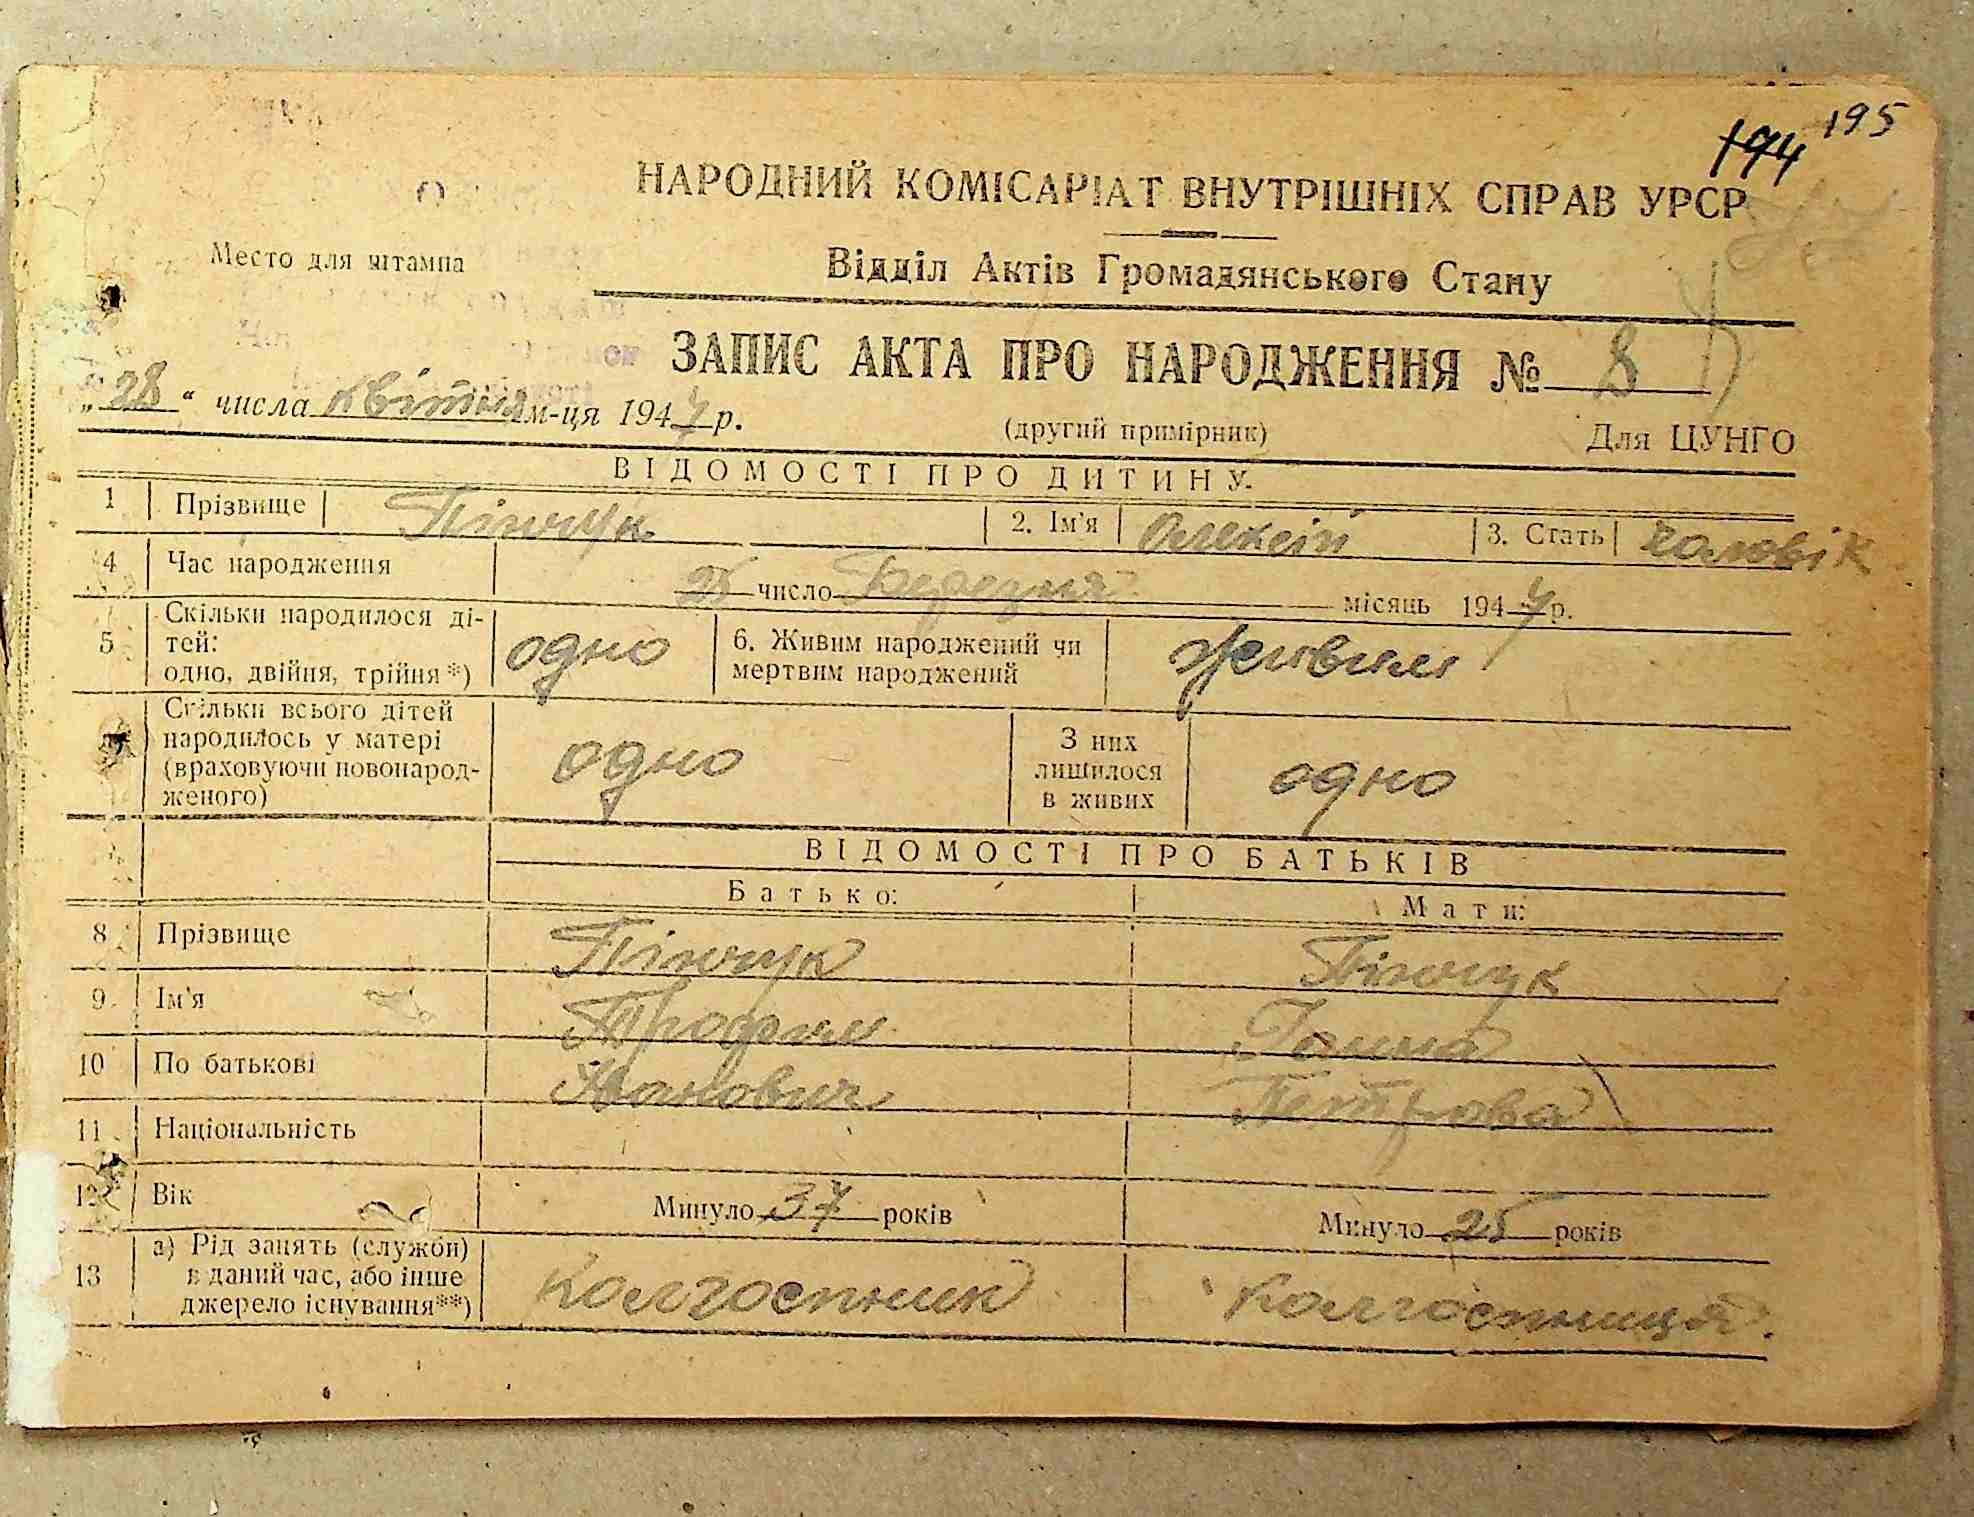 195
194
НАРОДНИЙ КОМІСАРІАТ ВНУТРІШНІХ СПРАВ УРСР
Место для штампа
Відділ Актів Громадянського Стану
ЗАПИС АКТА ПРО НАРОДЖЕННЯ № 8
„28“ числа квітня м-ця 1947 р.
(другий примірник)
Для ЦУНГО
ВІДОМОСТІ ПРО ДИТИНУ.
1 Прізвище Пінчук 2. Ім'я Олексій 3. Стать чоловік
4 Час народження 25 число Березня місяць 1947 р.
5 Скільки народилося ді-
тей:
одно, двійня, трійня*)
одно
6. Живим народжений чи
мертвим народжений
живим
Скільки всього дітей
народилось у матері
(враховуючи новонарод-
женого)
одно
З них
лишилося
в живих
одно
ВІДОМОСТІ ПРО БАТЬКІВ
Батько: Мати:
8 Прізвище Пінчук Пінчук
9 Ім'я Трофим Ганна
10 По батькові Іванович Петрова
11 Національність
12 Вік Минуло 37 років Минуло 25 років
13 а) Рід занять (служби)
в даний час, або інше
джерело існування**)
колгоспник колгоспниця.